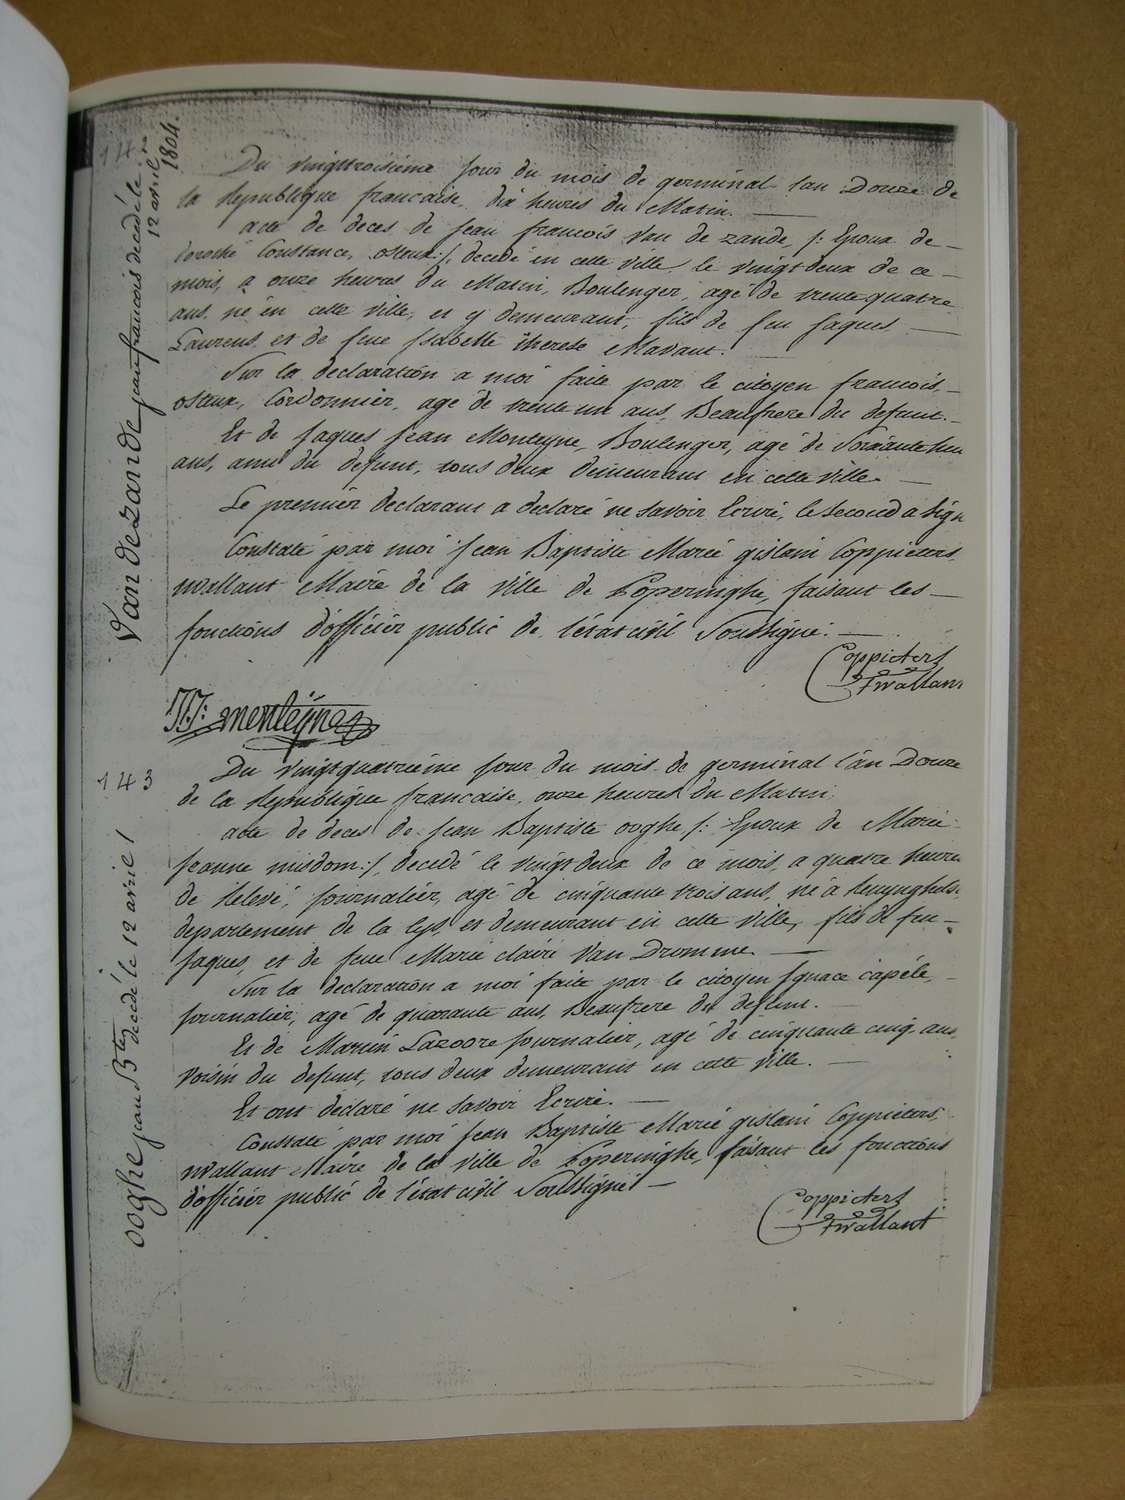 14
Van de Zande jean francois decedé le
12 avril
1804.
Du vingttroisieme jour du mois de germinal lan Douze de
la Republique francaise, dix heures du Matin.
acte de deces de jean francois Van de zande, /: Epoux de
Constance, osteux :/, decedé en cette ville le vingtdeux de ce
mois, a onze heures du Matin, Boulenger, agé de trente quatre
ans, né en cette ville, et y demeurant, fils de feu jaques
Laurens, et de feue jsabelle therese Mavaut.
Sur la declaration a moi faite par le citoyen francois,
osteux, Cordonnier, agé de trente un ans, Beaufrere du defunt.
Et de jaques jean Monteyne, Boulenger, agé de
ans, ami du defunt, tous deux demeurant en cette ville.
Le premier declarant a declaré ne savoir Ecrire, le second a Sign
Constaté par moi jean Baptiste Marie gislain Coppieters,
wallant Maire de la Ville de Poperinghe, faisant les
fonctions d'officier public de l'état civil Soussigné.
Coppieters
twallant
J: J: monteÿne
143
ooghe jean Bte decedé le 12 avril
Du vingtquatrieme jour du mois de germinal l'an Douze
de la Republique francaise, onze heures du Matin.
acte de deces de jean Baptiste ooghe /: Epoux de Marie
jeanne misdom :/, decedé le vingtdeux de ce mois, a quatre heures
de Relevé, journalier, agé de cinquante trois ans, né a
departement de la Lys, et demeurant en cette ville, fils de feu
jaques, et de feue Marie claire Van Dromme.
Sur la declaration a moi faite par le citoyen jgnace capéle,
journalier, agé de quarante ans, Beaufrere du defunt.
Et de Martin Lazoore journalier, agé de cinquante cinq ans,
voisin du defunt, tous deux demeurant en cette ville.
Et ont declaré ne savoir Ecrire.
Constaté par moi jean Baptiste Marie gislain Coppieters,
wallant Maire de la ville de Poperinghe, faisant les fonctions
d'officier public de l'état civil Soussigné
Coppieters
twallant